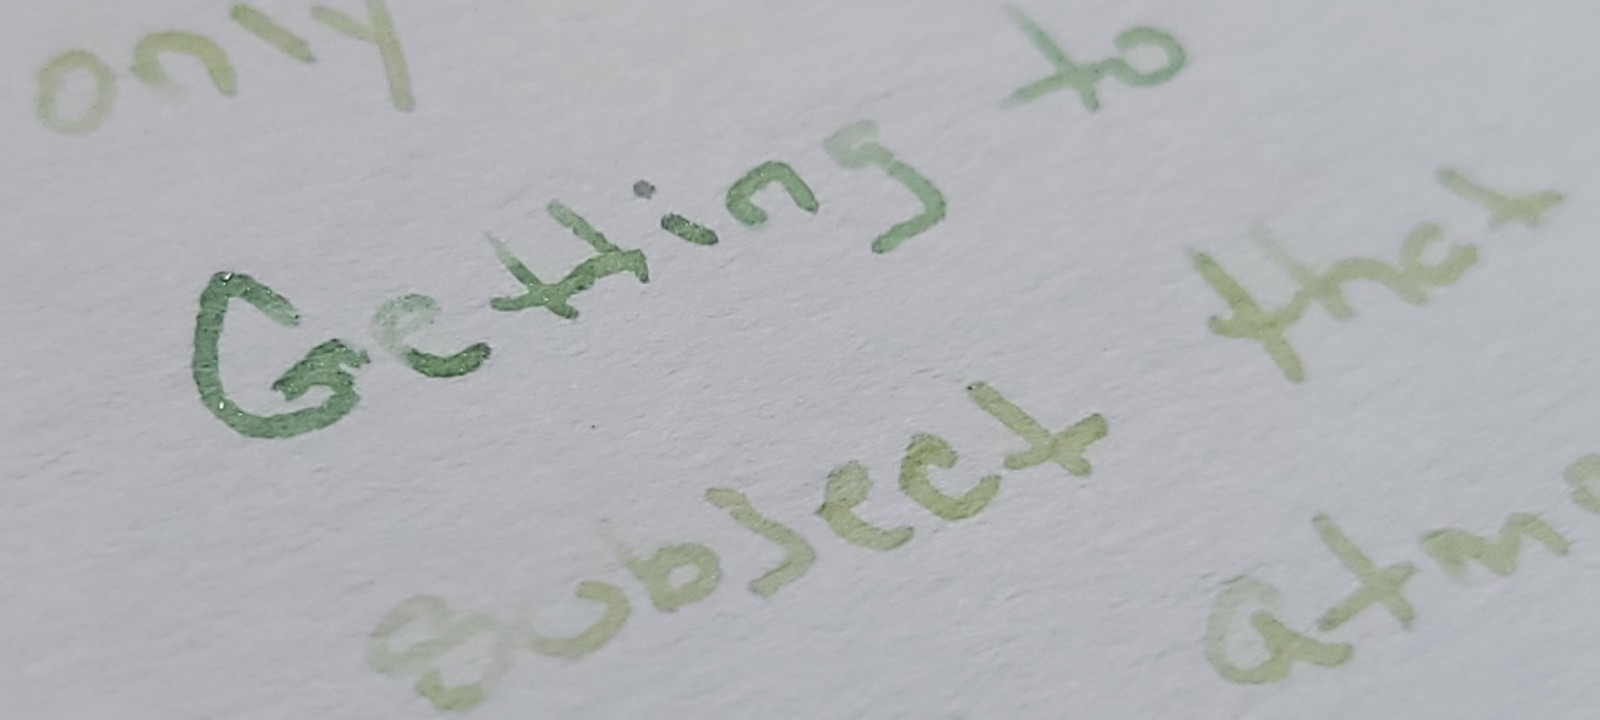 only
Getting to
subject that
atmo